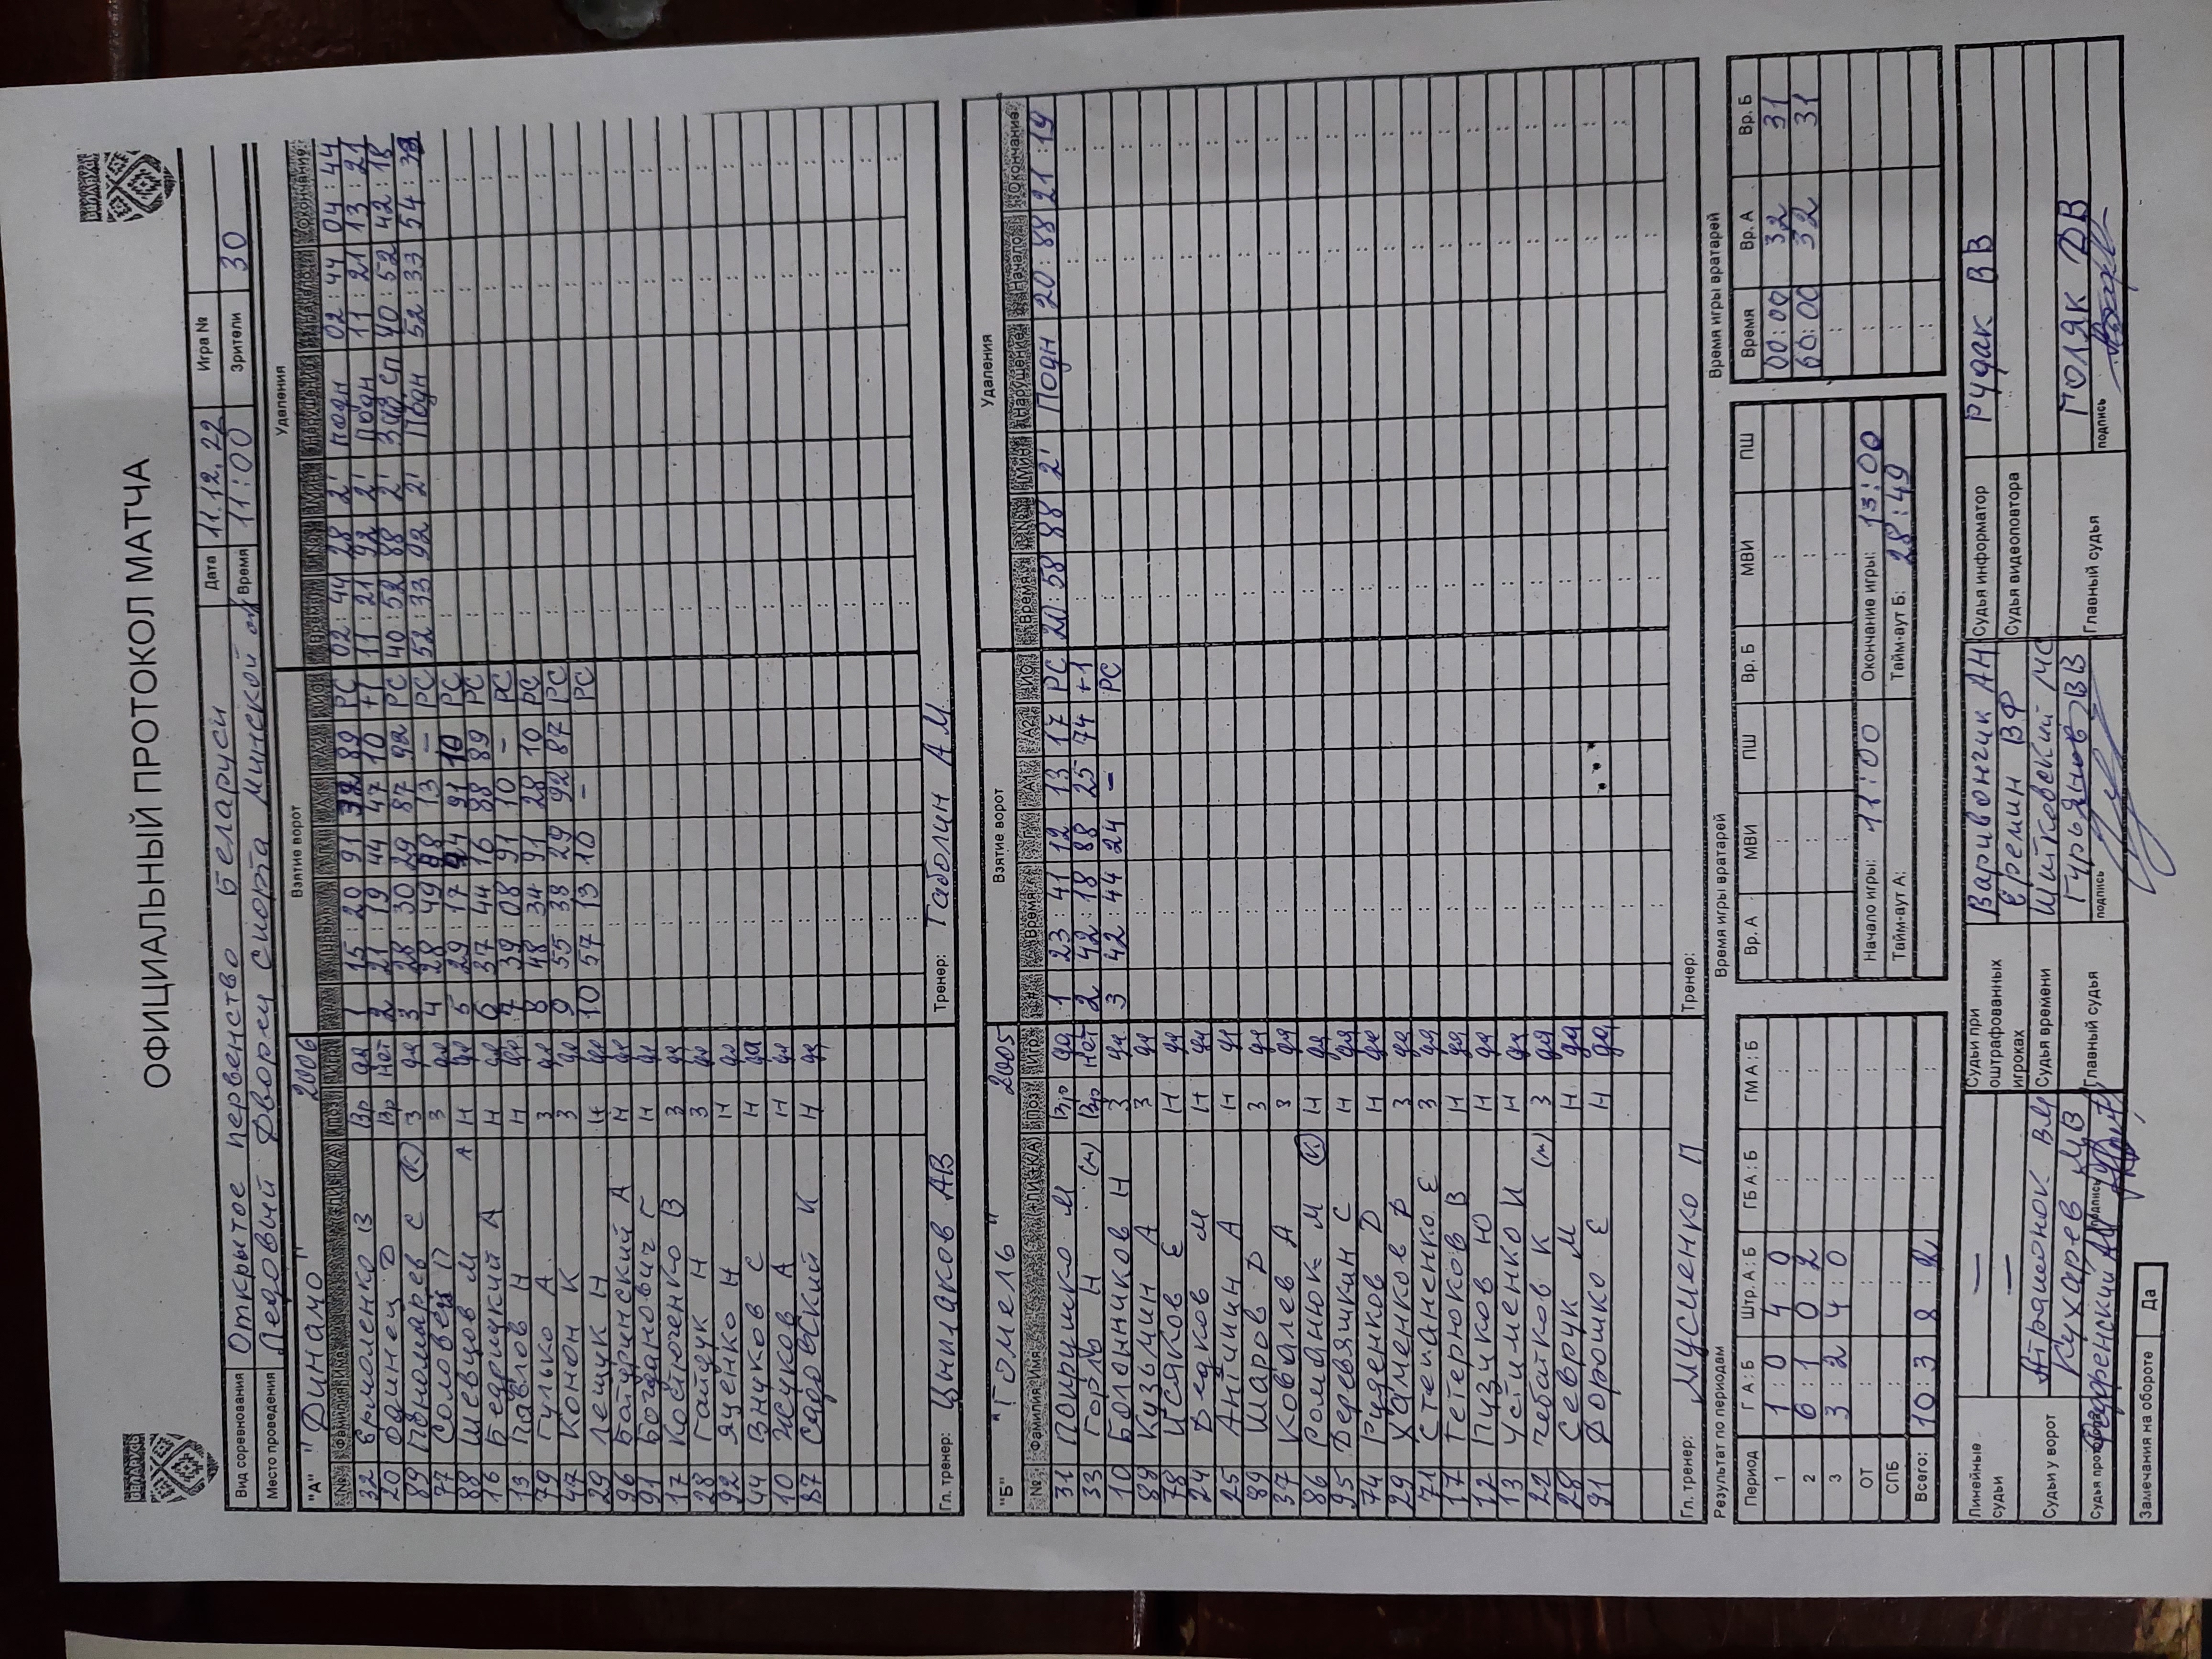 ОФИЦИАЛЬНЫЙ ПРОТОКОЛ МАТЧА
Вид соревнования Открытое первенство Беларуси Дата 11.12.22 Игра №
Место проведения Ледовый Дворец спорта Минской Время 11:00 Зрители 30
"А" "Динамо" 2006 Взятие ворот Удаления
№ Фамилия Имя (К/А) Поз Игр # Время Г А1 А2 ИС Время № Мин Нарушение Начало Окончание
32 Ермоленко В Вр да 1 15:20 91 32 89 РС 02:44 28 2' подн 02:44 04:44
20 Одинец Вр Нет 2 21:19 44 47 10 +1 11:21 92 2' Подн 11:21 13:21
89 Пономарев С (К) З да 3 28:30 29 87 92 РС 40:52 88 2' 40:52 42:18
77 Соловей П З да 4 28:49 98 13 – РС 52:33 92 2' Подн 52:33 54:33
88 Шевцов М А Н да 5 29:17 44 91 10 РС
16 Бедрицкий А Н да 6 37:44 16 88 89 РС
13 Павлов Н Н да 7 39:08 91 10 – РС
79 Гулько А З да 8 48:34 91 28 10 РС
47 Конон К З да 9 55:38 29 92 87 РС
29 Лещук Н Н да 10 57:13 10 – РС
96 Батуринский А Н да
91 Богданович Г Н да
17 Костюченко В З да
28 Гайдук Н З да
92 Яценко Н Н да
44 Внуков С Н да
10 Жуков А Н да
87 Садовский К Н да
Гл. тренер: Цыплаков АВ Тренер: Таболин А.М.
"Б" "Гомель" 2005 Взятие ворот Удаления
№ Фамилия Имя (К/А) Поз Игр # Время Г А1 А2 ИС Время № Мин Нарушение Начало Окончание
31 Покрушко М Вр да 1 23:41 12 13 17 РС 20:58 88 2' Подн 20:88 21:19
33 Горль Н (м) Вр Нет 2 42:18 88 25 74 +1
10 Болонников Н З да 3 42:44 24 – РС
88 Кузьмин А З да
78 Исяков Е Н да
24 Дедков М Н да
25 Антипин А Н да
89 Шаров Д З да
37 Ковалев А З да
86 Романюк М (К) Н да
95 Деревяшкин С Н да
74 Руденков Д Н да
29 Хаменков Д З да
71 Степаненко Е З да
17 Тетерюков В Н да
12 Пузиков Ю Н да
13 Устименко И Н да
22 Чебатков К (м) З да
28 Севрук М Н да
91 Дорошко Е Н да
Гл. тренер: Мусиенко П Тренер:
Результат по периодам Время игры вратарей Время игры вратарей
Период Г А:Б Штр. А:Б ГБ А:Б ГМ А:Б Вр. А МВИ ПШ Вр. Б МВИ ПШ Время Вр. А Вр. Б
1 1:0 4:0 00:00 32 31
2 6:1 0:2 60:00 32 31
3 3:2 4:0
ОТ Начало игры: 11:00 Окончание игры: 13:00
СПБ Тайм-аут А: Тайм-аут Б: 28:49
Всего: 10:3 8:2
Линейные судьи — — Судьи при оштрафованных игроках Варивончик АН Еремин ВФ Судья информатор Рудак ВВ
Судья видеоповтора
Судьи у ворот Кухарев МВ Судья времени Шитковский МС
Главный судья Гурьянов ВВ подпись Главный судья Поляк ДВ подпись
Замечания на обороте Да